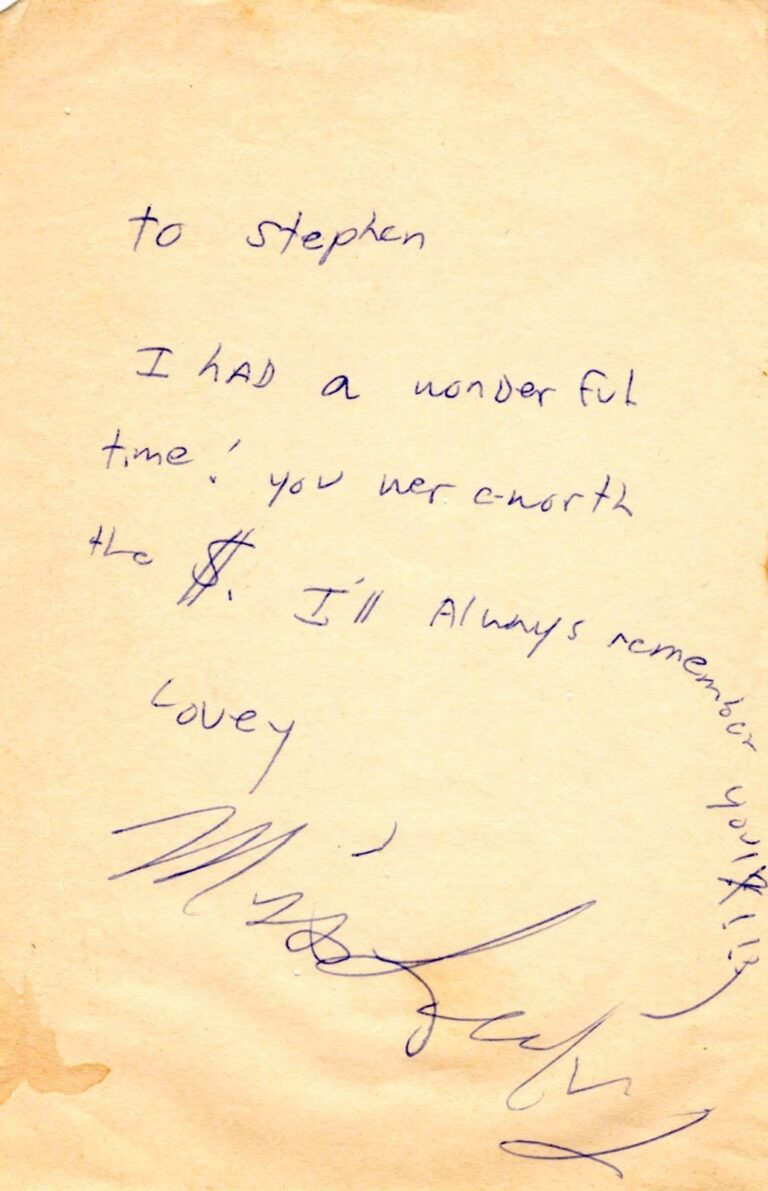 to Stephen
I hAD a wonDerful
time! you wer e worth
the $. I'll Always remember you!
Lovey